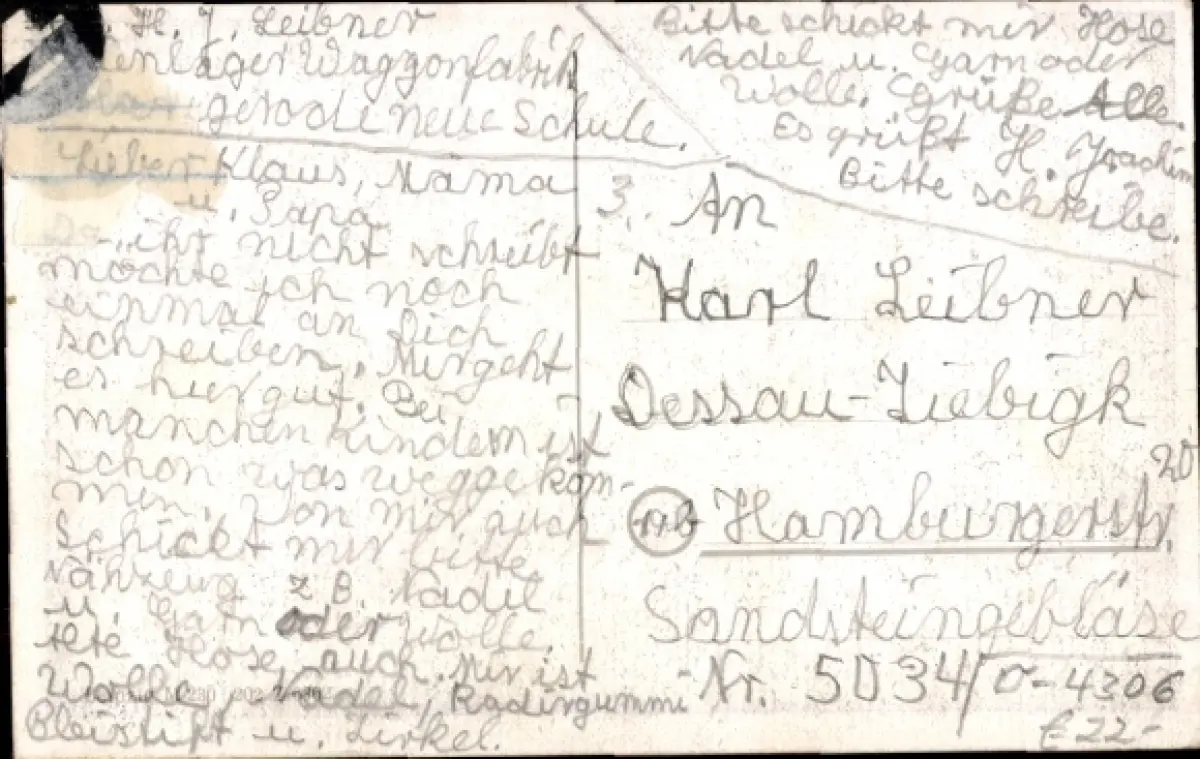 H. J. Leibner
enlager Waggonfabrik
gerode neue Schule.
Lieber Klaus, Mama
u. Papa
Da ihr nicht schreibt
möchte ich noch
einmal an Dich
schreiben. Mir geht
es hier gut. Bei
manchen Kindern ist
schon was weggekom-
men. Von mir auch
Schickt mir bitte
Nähzeug z B Nadel
u. Garn oder Wolle.
Hose auch. Mir ist
Wolle, Nadel, Radirgummi
Bleistift u. Zirkel.
Bitte schickt mir Hose
Nadel u. Garn oder
Wolle. Grüße Alle.
Es grüßt H. Joachim
Bitte schreibe.
3. An
Karl Leibner
Dessau-Ziebigk
20
Hamburgerstr.
Sandsteingebläse
Nr. 5034/D-4306
£ 22-